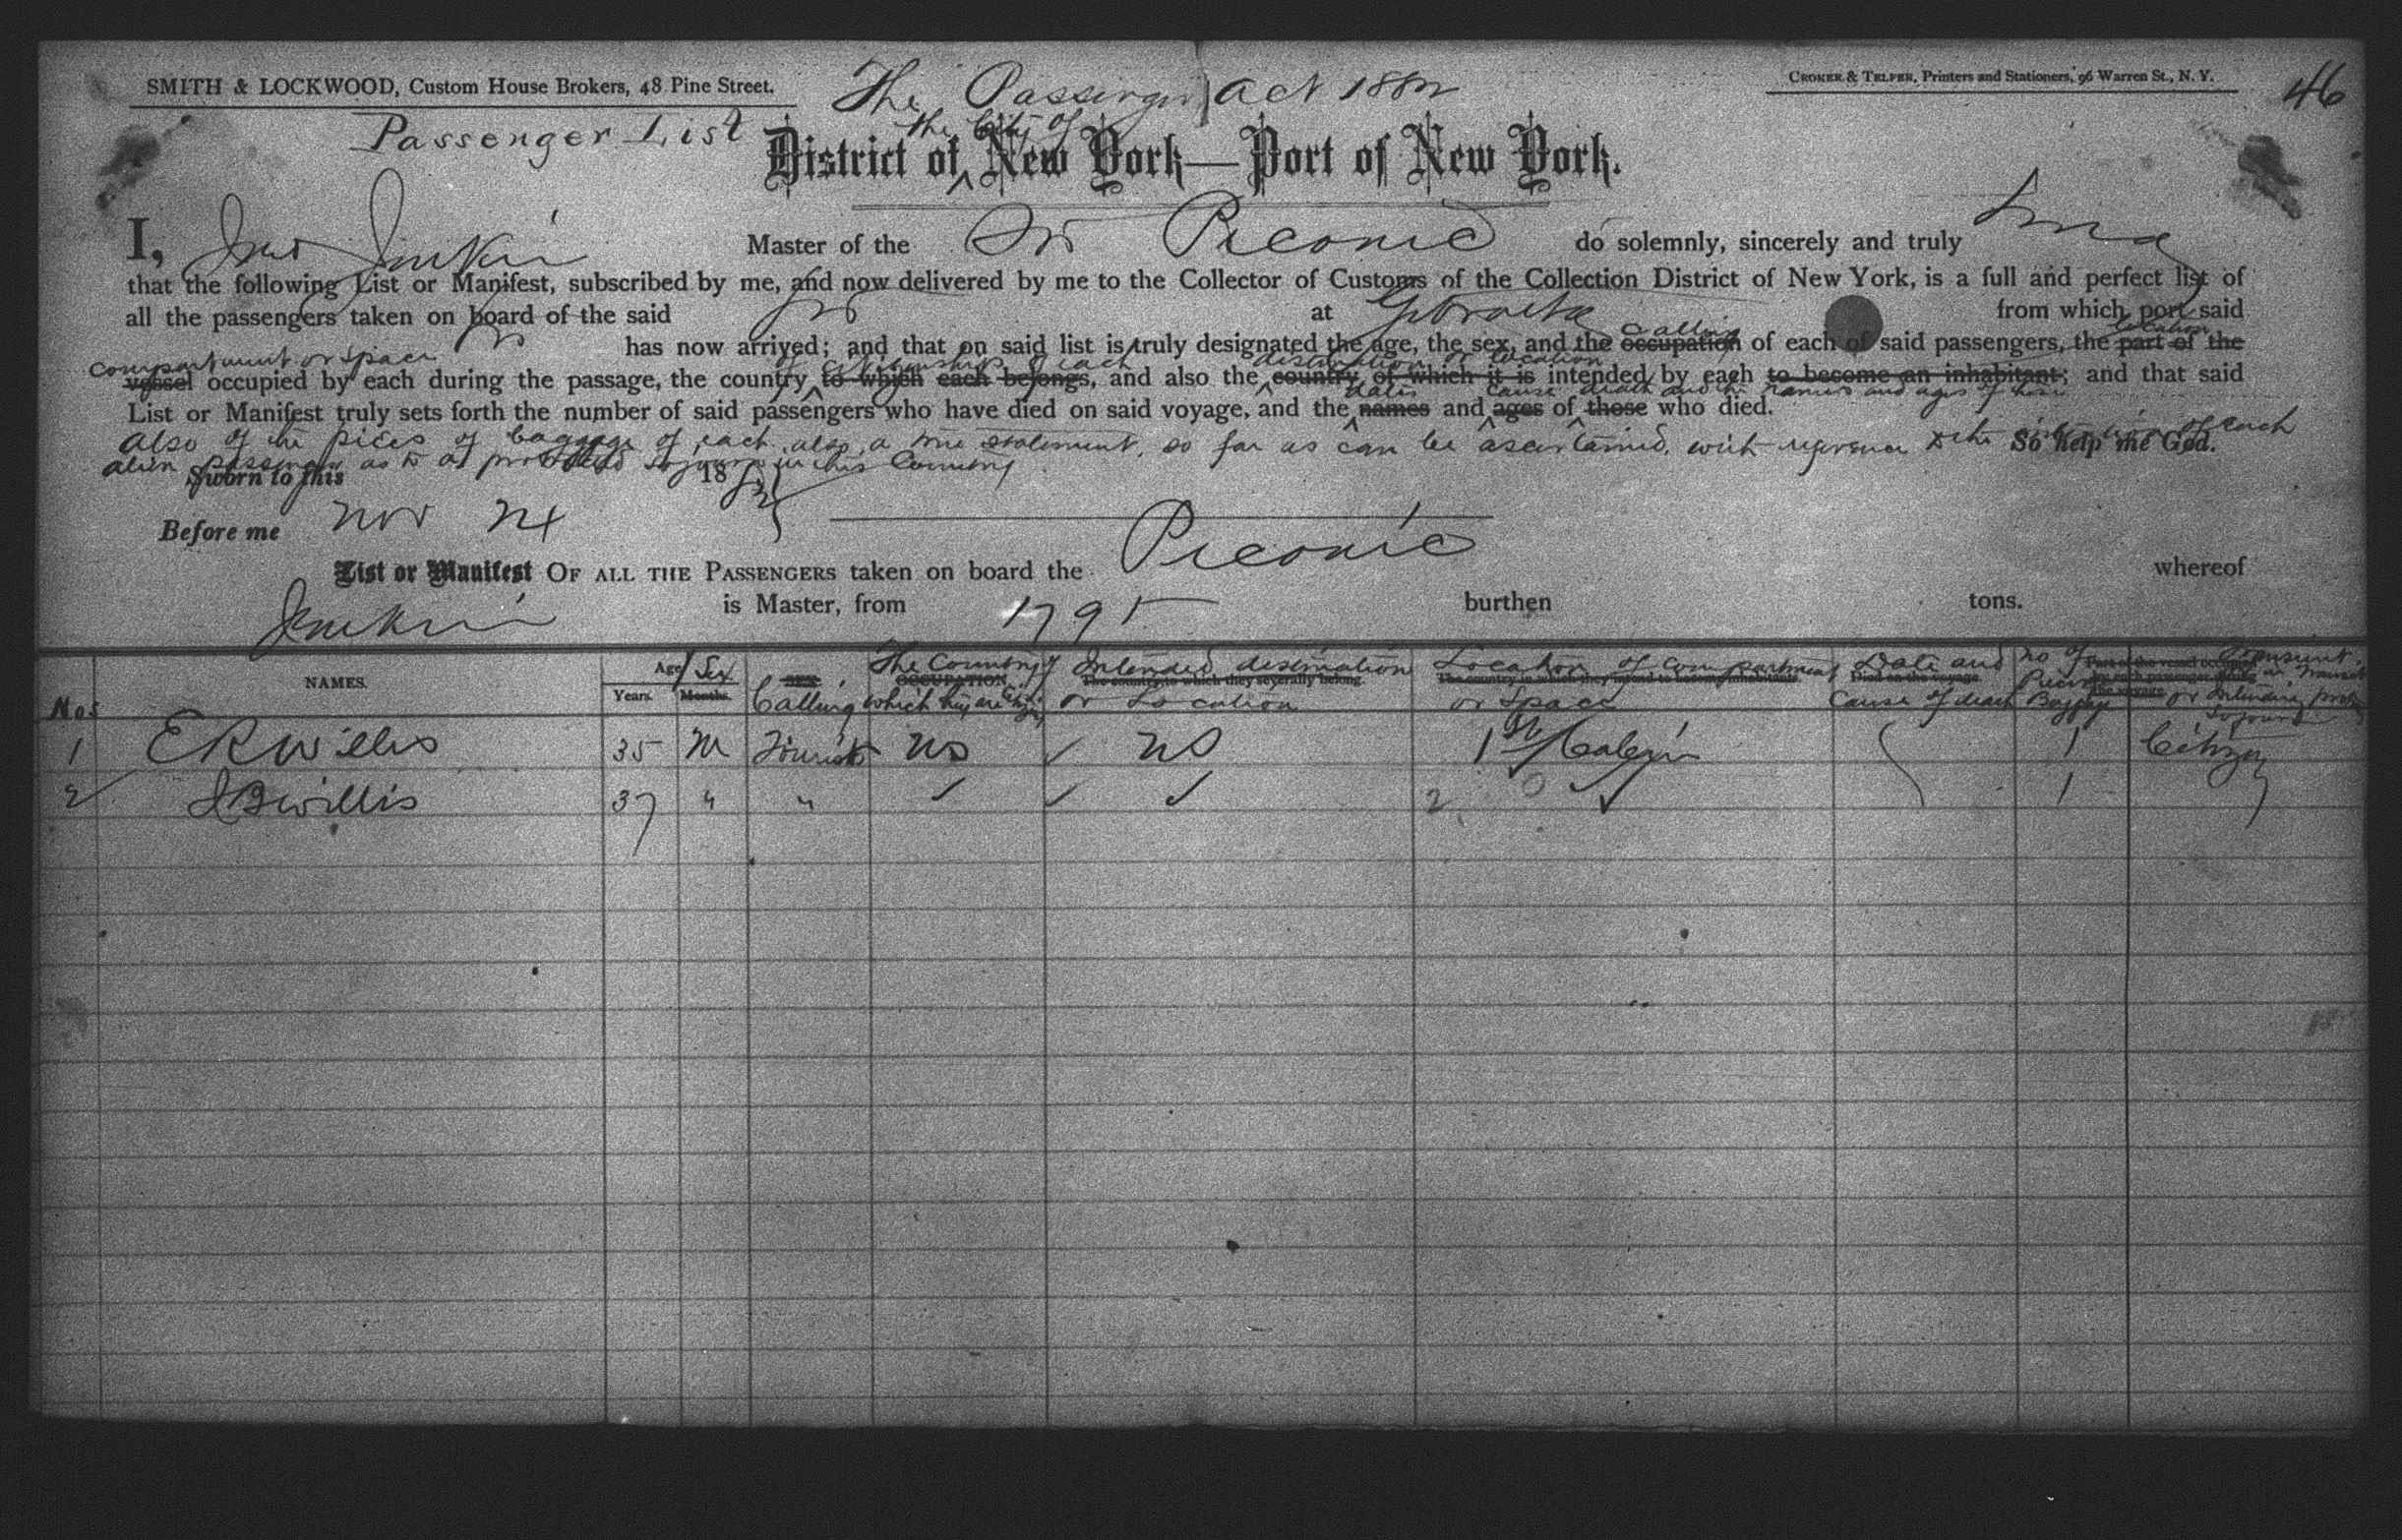 SMITH & LOCKWOOD, Custom House Brokers, 48 Pine Street.
The Passenger Act 1882
CROKER & TELFER, Printers and Stationers, 96 Warren St., N. Y.
46
Passenger List
the City of
District of New York—Port of New York.
I, Jno Jenkin Master of the Str Peconic do solemnly, sincerely and truly
that the following List or Manifest, subscribed by me, and now delivered by me to the Collector of Customs of the Collection District of New York, is a full and perfect list of
all the passengers taken on board of the said at Gibraltar from which port said
calling location
has now arrived; and that on said list is truly designated the age, the sex, and the occupation of each of said passengers, the part of the
compartment or space of citizenship of each destination or location
vessel occupied by each during the passage, the country to which each belongs, and also the country of which it is intended by each to become an inhabitant; and that said
dates cause death and the names and ages of those
List or Manifest truly sets forth the number of said passengers who have died on said voyage, and the names and ages of those who died.
also of the pices of baggage of each also a true statement, so far as can be ascertained, with reference to the of each
alien passenger as to a protracted sojourn in this Country So help me God.
Sworn to this 18
Before me Nov 24
Peconic
List or Manifest OF ALL THE PASSENGERS taken on board the whereof
Jenkin is Master, from 1795 burthen tons.
Nos NAMES. Age Years. Months. Sex SEX. Calling The Country of OCCUPATION. which they are Intended destination The country to which they severally belong. or Location Location of compartment The country in which they intend to become inhabitants. or space Date and Died on the voyage. Cause of death No of Pieces Baggage Part of the vessel occupied by each passenger during the voyage. Transient, in Transit or Intending Sojourn
1 E R Willis 35 M Tourist US ✓ US 1st Cabin 1 Citizen
2 J B Willis 37 " " ✓ ✓ ✓ 2 ✓ 1